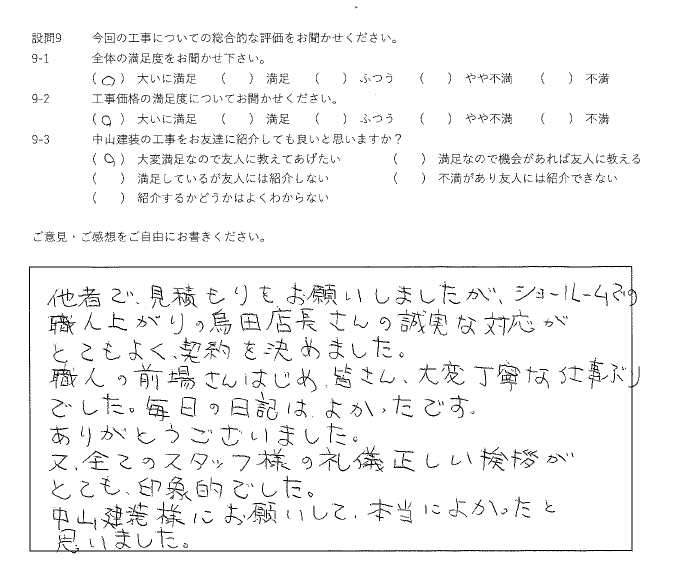 設問9 今回の工事についての総合的な評価をお聞かせください。
9-1 全体の満足度をお聞かせ下さい。
(○) 大いに満足 ( ) 満足 ( ) ふつう ( ) やや不満 ( ) 不満
9-2 工事価格の満足度についてお聞かせください。
(○) 大いに満足 ( ) 満足 ( ) ふつう ( ) やや不満 ( ) 不満
9-3 中山建装の工事をお友達に紹介しても良いと思いますか？
(○) 大変満足なので友人に教えてあげたい ( ) 満足なので機会があれば友人に教える
( ) 満足しているが友人には紹介しない ( ) 不満があり友人には紹介できない
( ) 紹介するかどうかはよくわからない
ご意見・ご感想をご自由にお書きください。
他者で、見積もりをお願いしましたが、ショールームでの
職人上がりの鳥田店長さんの誠実な対応が
とてもよく、契約を決めました。
職人の前場さんはじめ、皆さん、大変丁寧な仕事ぶり
でした。毎日の日記は、よかったです。
ありがとうございました。
又、全てのスタッフ様の礼儀正しい挨拶が
とても、印象的でした。
中山建装様にお願いして、本当によかったと
思いました。